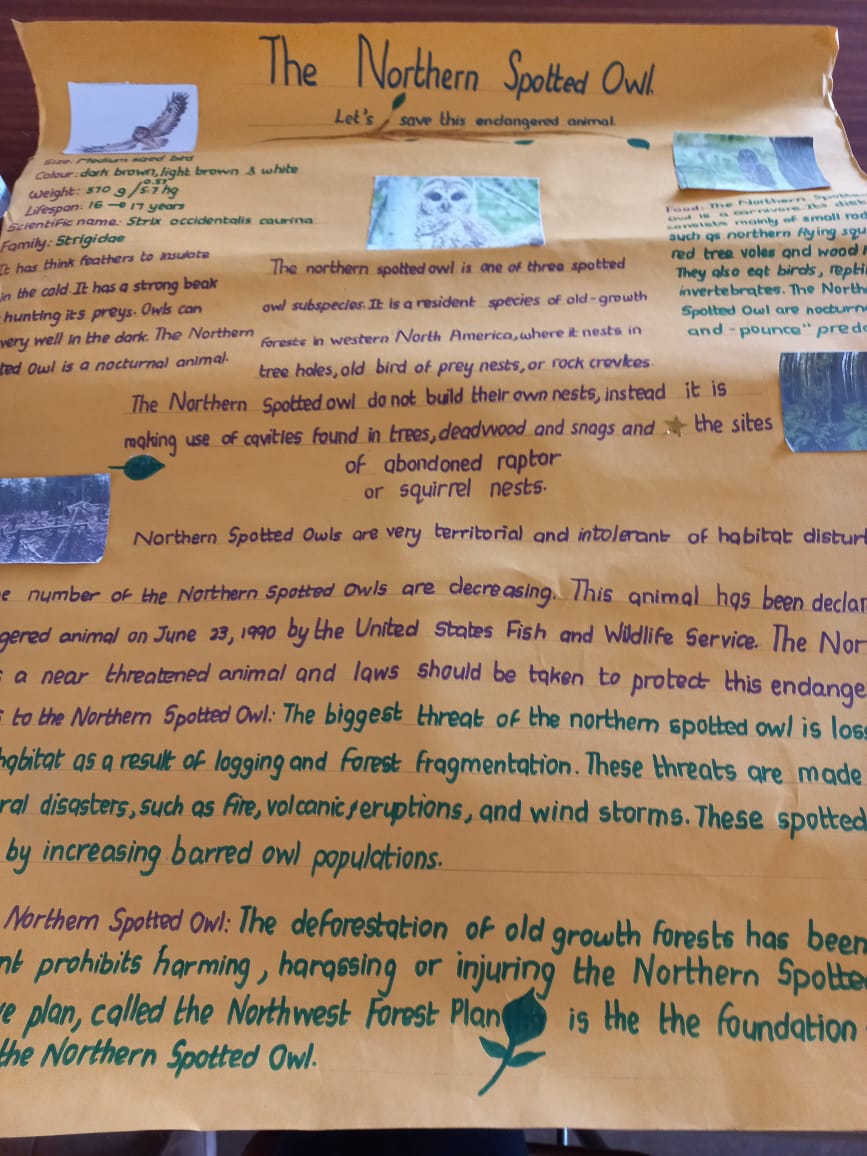 The Northern Spotted Owl.
Let's save this endangered animal.
Size: Medium sized bird
Colour: dark brown, light brown & white
Weight: 570 g / 5.7 hg
0.57
Lifespan: 16 → 17 years
Scientific name: Strix occidentalis caurina
Family: Strigidae
It has think feathers to insulate
in the cold It has a strong beak
hunting its preys. Owls can
very well in the dark. The Northern
ted Owl is a nocturnal animal.
The northern spotted owl is one of three spotted
owl subspecies. It is a resident species of old-growth
forests in western North America, where it nests in
tree holes, old bird of prey nests, or rock crevices.
Food: The Northern Spotted
owl is a carnivore. Its diet
consists mainly of small
such as northern flying squ
red tree voles and wood r
They also eat birds, repti
invertebrates. The North
Spotted Owl are nocturn
and-pounce" preda
The Northern Spotted owl do not build their own nests, instead it is
making use of cavities found in trees, deadwood and snags and the sites
of abondoned raptor
or squirrel nests.
Northern Spotted Owls are very territorial and intolerant of habitat disturb
e number of the Northern Spotted Owls are decreasing. This animal has been declar
gered animal on June 23, 1990 by the United States Fish and Wildlife Service. The Nor
s a near threatened animal and laws should be taken to protect this endange
s to the Northern Spotted Owl: The biggest threat of the northern spotted owl is loss
habitat as a result of logging and forest fragmentation. These threats are made
ral disasters, such as fire, volcanic eruptions, and wind storms. These spotted
by increasing barred owl populations.
Northern Spotted Owl: The deforestation of old growth forests has been
nt prohibits harming, harassing or injuring the Northern Spotted
ve plan, called the Northwest Forest Plan is the the foundation
the Northern Spotted Owl.